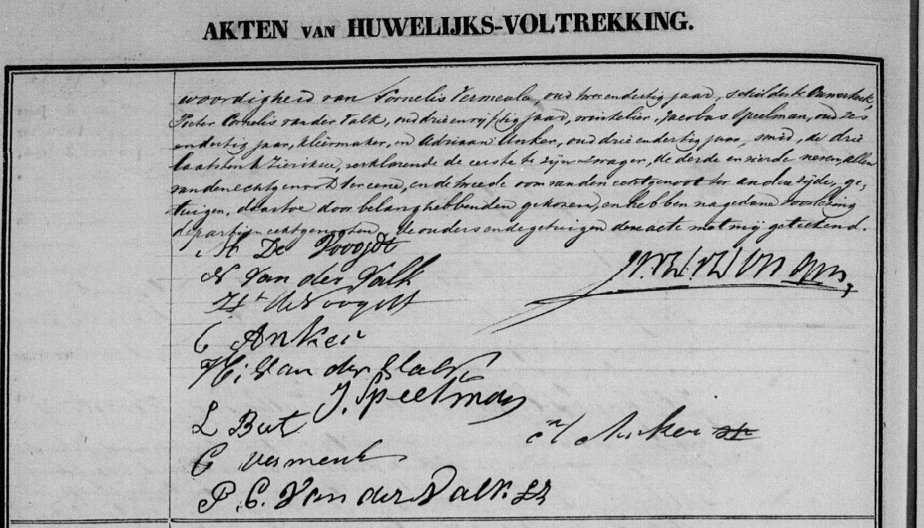 AKTEN VAN HUWELIJKS-VOLTREKKING.
woordigheid van Cornelis Vermeule, oud twee en dertig jaar, schilder te Ouwerkerk,
Pieter Cornelis van der Valk, oud drie en vyftig jaar, winkelier, Jacobus Speelman, oud zes
en dertig jaar, kleermaker, en Adriaan Anker, oud drie en dertig jaar, smid, de drie
laatsten te Zierikzee, verklarende de eerste te zijn zwager, de derde en vierde neven, allen
van den echtgenoot ter eene, en de tweede oom van den echtgenoot ter andere zijde, ge-
tuigen, daartoe door belanghebbenden gekozen, en hebben na gedane voorlezing
de partijen echtgenooten, de ouders en de getuigen deze acte met mij geteekend.
M De Voogdt
N Van der Valk
de Voogdt
C Anker
Van der Valk
J. Speelman
L But
A Anker
C Vermeule
P. C. Van der Valk.